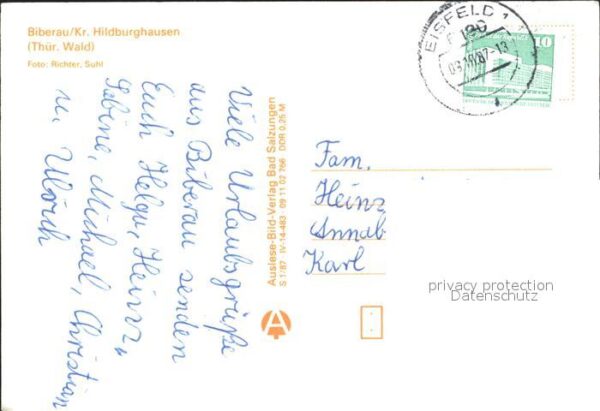 Biberau/Kr. Hildburghausen
(Thür. Wald)
Foto: Richter, Suhl
Viele Urlaubsgrüße
aus Biberau senden
Euch Helga, Heinz,
Sabine, Michael, Christian
u. Ulrich
Auslese-Bild-Verlag Bad Salzungen
S 1/87 IV-14-483 09 11 02 766 DDR 0,25 M
A
EISFELD 1
10
Fam.
Heinz
Annab
Karl
privacy protection
Datenschutz